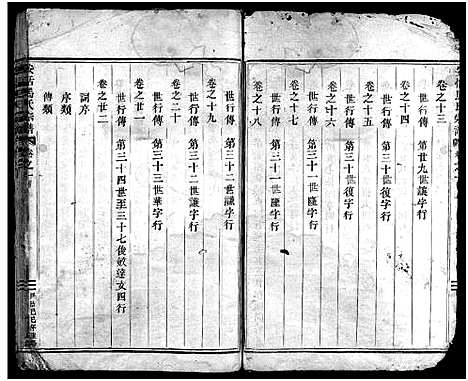 卷之十三
世行傳 第廿九世議字行
卷之十四
世行傳 第三十世復字行
卷之十五
世行傳 第三十世復字行
卷之十六
世行傳 第三十一世隆字行
卷之十八
世行傳 第三十一世隆字行
世行傳 第三十二世謙字行
卷之十九
世行傳 第三十二世謙字行
卷之二十
世行傳 第三十三世華字行
卷之廿一
世行傳 第三十四世至三十七俊斂達文四行
卷之廿二
詞序
序類
傳類
氏宗譜